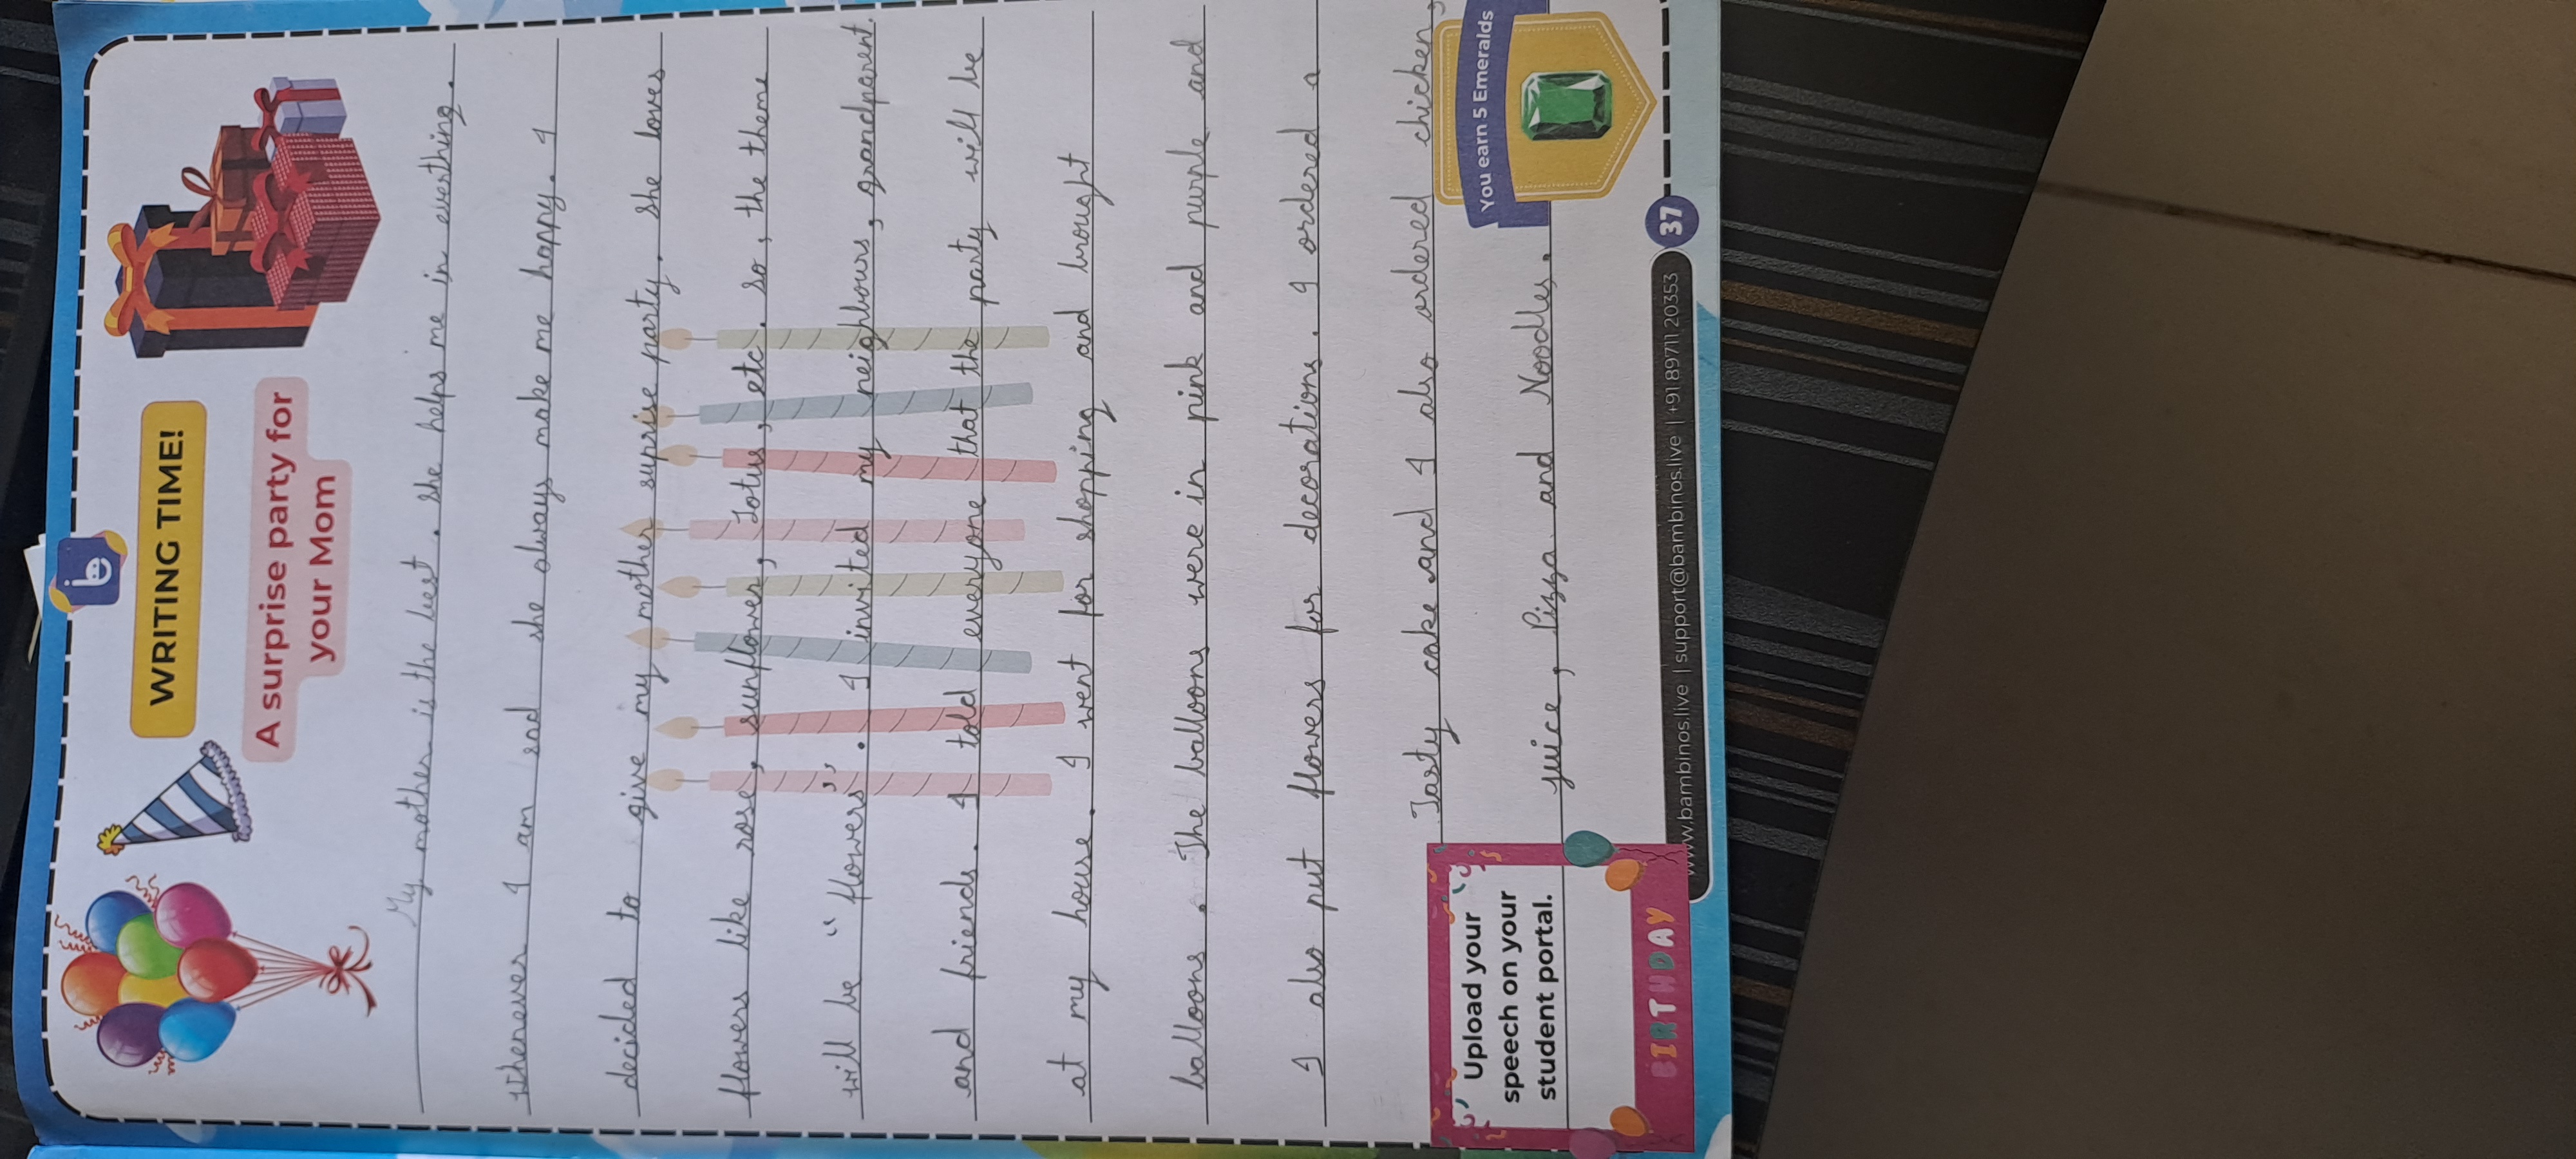 WRITING TIME!
A surprise party for
your Mom
My mother is the best. she helps me in everthing.
Whenever I am sad she always make me happy. I
decided to give my mother suprise party. she loves
flowers like rose, sunflower, Lotus, etc. so, the theme
will be "flowers". I invited my neighbours, grandparent.
and friends. I told everyone that the party will be
at my house. I went for shopping and brought
balloons. The balloons were in pink and purple and
I also put flowers for decorations. I ordered a
Tasty cake and I also ordered chicken,
juice, Pizza and Noodles.
Upload your
speech on your
student portal.
BIRTHDAY
You earn 5 Emeralds
www.bambinos.live | support@bambinos.live | +91 89711 20353
37